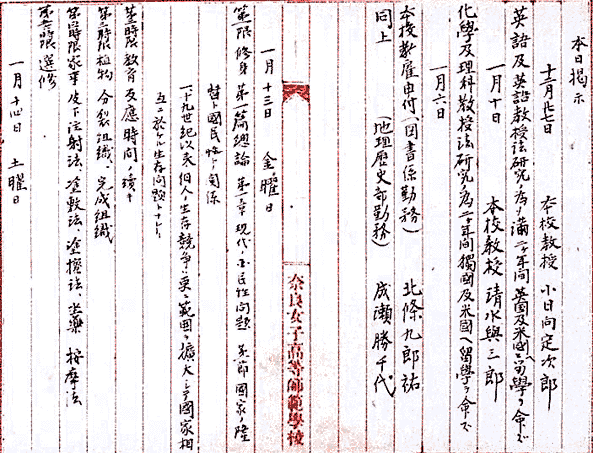 本日掲示
十二月廿七日　本校教授　小日向定次郎
英語及英語教授法研究ノ為メ満二ケ年間英国及米国ヘ留学ヲ命ズ
一月十日　本校教授　清水與三郎
化學及理科教授法研究ノ為メ二ケ年間獨國及米國ヘ留學ヲ命ズ
一月六日
本校教雇申付（図書係勤務）　北條九郎祐
同上　（地理歴史部勤務）　成瀬勝千代
奈良女子高等師範學校
一月十三日　金曜日
第一限　修身　第一篇總論　第一章　現代ノ　問題　第一節　國家ノ隆
替ト國民性トノ関係
一、十九世紀以来個人ノ生存競争ハ更ニ範囲ヲ擴大シテ國家相
互ニ於ケル生存問題トナレリ
第二時限　教育　反應時間ノ續キ
第三時限　植物　分裂組織、完成組織
第四時限　家事　皮下注射法、塗敷法、塗擦法、坐薬　按摩法
第五時限　選修
一月十四日　土曜日